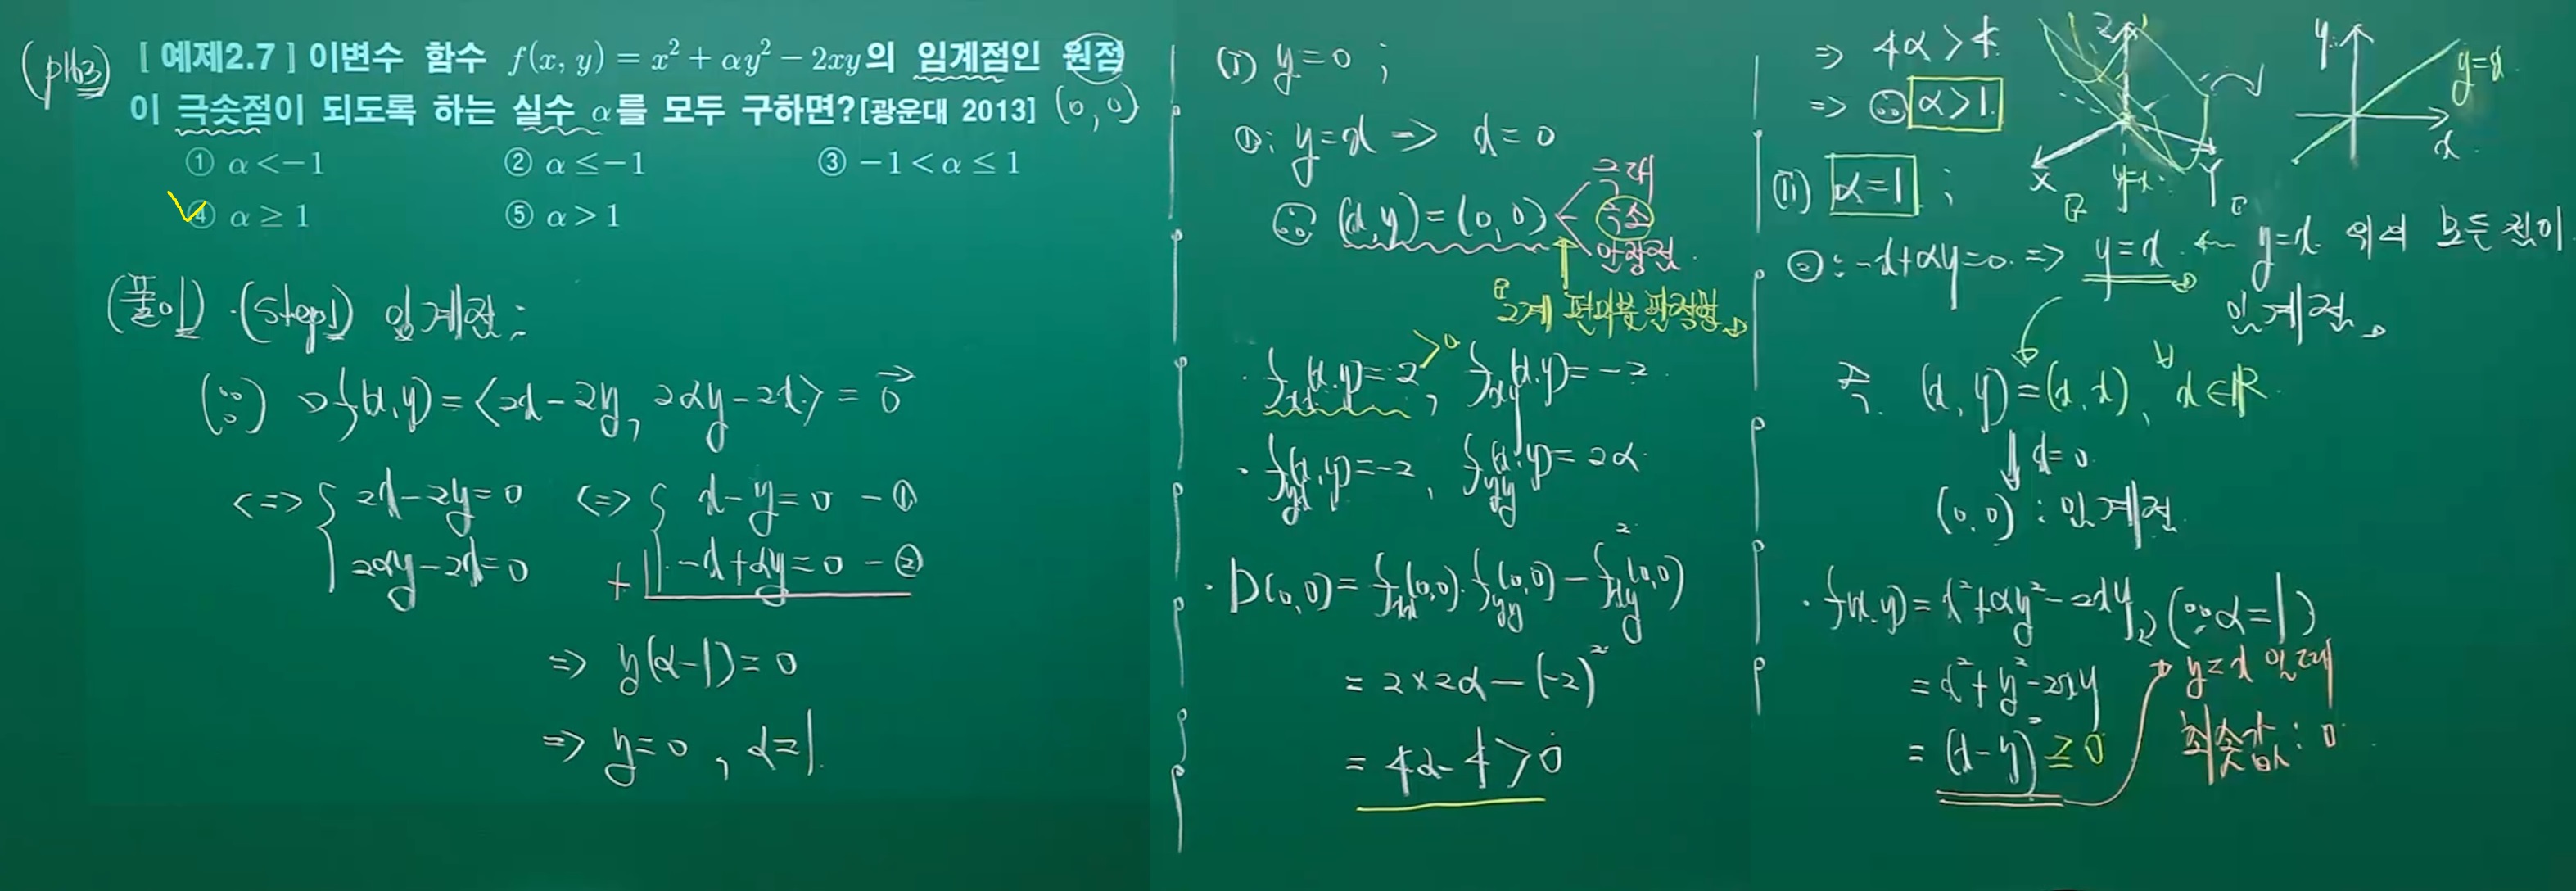 (p163)
[ 예제2.7 ] 이변수 함수 f(x, y) = x² + αy² − 2xy의 임계점인 원점
이 극솟점이 되도록 하는 실수 α를 모두 구하면?[광운대 2013] (0, 0)
① α < −1 ② α ≤ −1 ③ −1 < α ≤ 1
④ α ≥ 1 ⑤ α > 1
(풀이) ·(step1) 임계점 :
(∵) ∇f(x,y) = <2x−2y, 2αy−2x> = 0⃗
<=> { 2x−2y=0 <=> { x−y=0 −①
2αy−2x=0 + −x+αy=0 −②
=> y(α−1)=0
=> y=0 , α=1
(i) y=0 ;
①: y=x → x=0
∴ (x,y)=(0,0) < 극대
극소
안장점
「2계 편미분 판정법」
· fxx(x,y)=2 >0, fxy(x,y)=−2
· fyx(x,y)=−2, fyy(x,y)=2α
· D(0,0) = fxx(0,0)·fyy(0,0) − fxy²(0,0)
= 2×2α − (−2)²
= 4α−4 > 0
=> 4α > 4
=> ∴ α>1
Z
X
Y
y=x
y
x
y=x
(ii) α=1 ;
②: −x+αy=0 => y=x ← 「y=x 위의 모든 점이
임계점」
즉, (x,y)=(x,x), ∀x∈ℝ
↓ x=0
(0,0) : 임계점
· f(x,y) = x²+αy²−2xy (∵α=1)
= x²+y²−2xy
= (x−y)² ≥ 0
→ y=x 일 때
최솟값 : 0